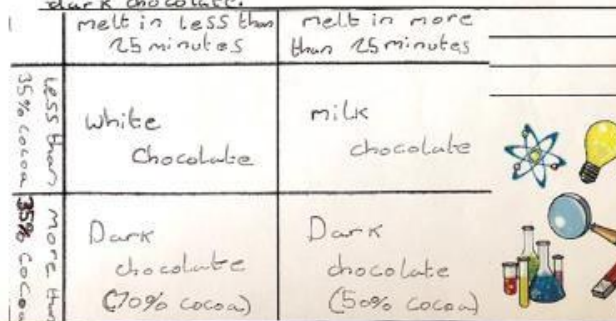 dark chocolate.
melt in less than
25 minutes
melt in more
than 25 minutes
Less than
35% cocoa
white
Chocolate
milk
chocolate
More than
35% cocoa
Dark
chocolate
(70% cocoa)
Dark
chocolate
(50% cocoa)